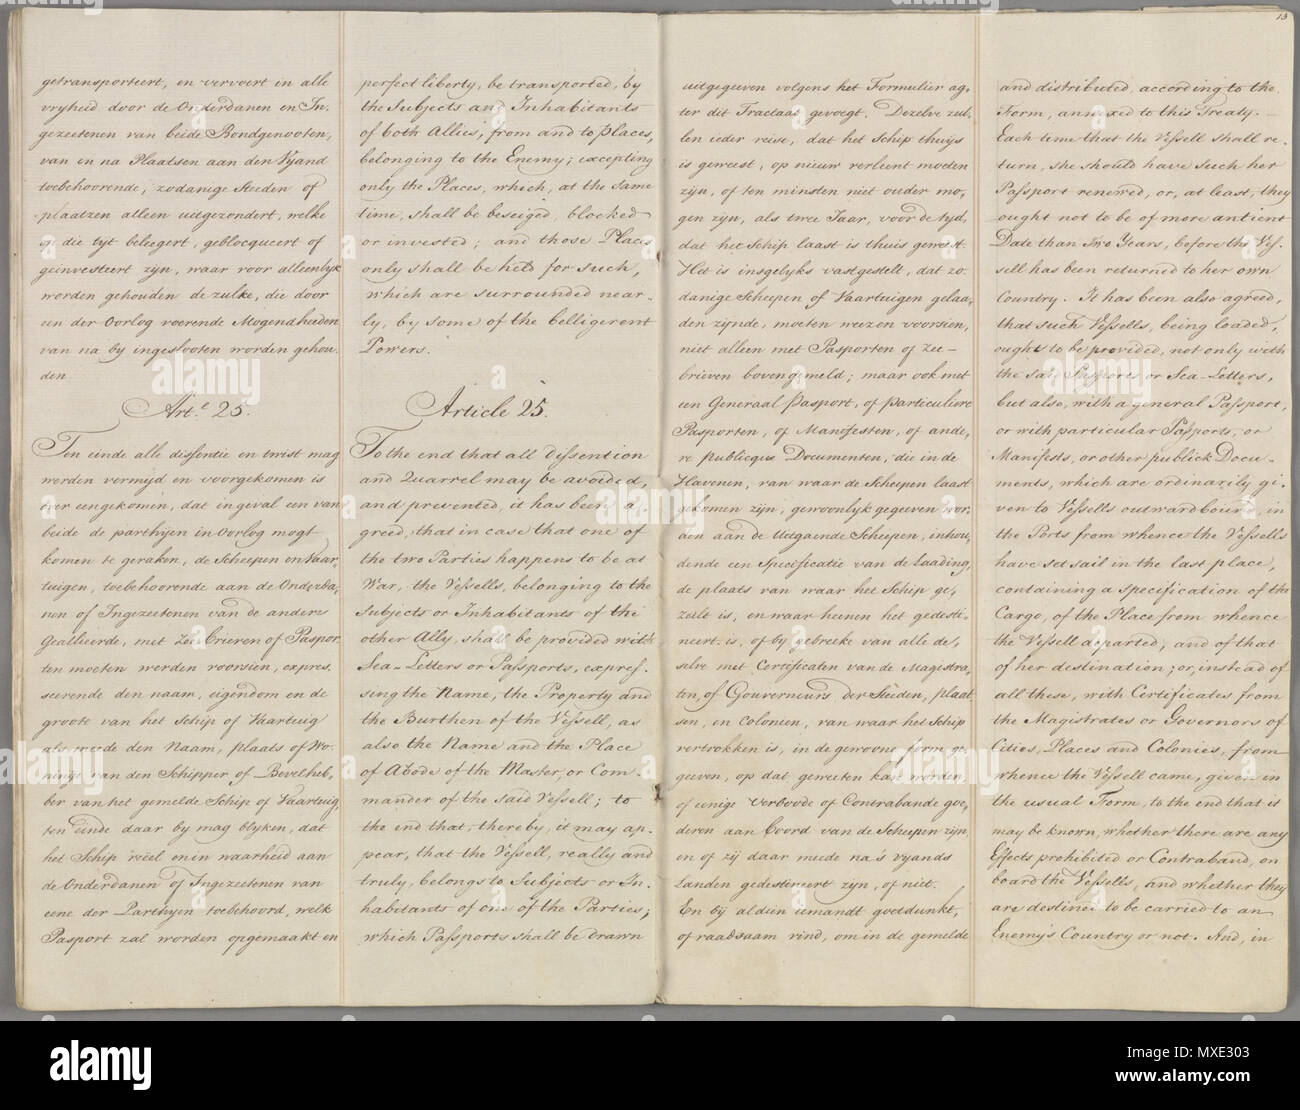 getransporteert, en vervoert in alle
vryheid door de Onderdanen en In,
gezeetenen van beide Bondgenooten,
van en na Plaatsen aan den Vyand
toebehoorende, zodanige Steeden of
plaatzen alleen uitgezondert, welke
op die tyt belegert, geblocqueert of
geinvesteert zijn, waar voor alleenlyk
worden gehouden de zulke, die door
een der Oorlog voerende Mogendheeden
van na by ingeslooten worden gehou,
den
Art.^l 25.
Ten einde alle dissentie en twist mag
werden vermijd en voorgekomen is
over eengekomen, dat ingeval een van
beide de parthijen in Oorlog mogt
komen te geraken, de Scheepen en Vaar,
tuigen, toebehoorende aan de Onderda,
nen of Ingezeetenen van de andere
Geallieerde, met Zee brieven of Paspor,
ten moeten werden voorsien, expres,
seerende den naam, eigendom en de
groote van het Schip of Vaartuig
als meede den Naam, plaats of Wo,
ninge van den Schipper of Bevelheb,
ber van het gemelde Schip of Vaartuig,
ten einde daar by mag blyken, dat
het Schip reëel en in waarheid aan
de Onderdanen of Ingezeetenen van
eene der Parthyen toebehoord, welk
Pasport zal worden opgemaakt en
perfect liberty, be transported, by
the Subjects and Inhabitants
of both Allies, from and to places,
belonging to the Enemy; excepting
only the Places, which, at the same
time, shall be beseiged, blocked
or invested; and those Places
only shall be held for such,
which are surrounded near-
ly, by some of the belligerent
Powers.
Article 25.
To the end that all dissention
and Quarrel may be avoided,
and prevented, it has been a,
greed, that in case that one of
the two Parties happens to be at
War, the Vessells, belonging to the
Subjects or Inhabitants of the
other Ally, shall be provided with
Sea-Letters or Passports, expres,
sing the Name, the Property and
the Burthen of the Vessell, as
also the Name and the Place
of Abode of the Master, or Com-
mander of the said Vessell; to
the end that, thereby, it may ap-
pear, that the Vessell, really and
truly, belongs to Subjects or In,
habitants of one of the Parties;
which Passports shall be drawn
13
uitgegeven volgens het Formulier ag,
ter dit Tractaat gevoegt. Dezelve zul,
len ieder reise, dat het Schip thuijs
is geweest, op nieuw verleent moeten
zijn, of ten minsten niet ouder mo,
gen zijn, als twee Jaar, voor de tyd,
dat het Schip laast is thuis geweest.
Het is insgelyks vastgestelt, dat zo,
danige Scheepen of Vaartuigen gelaa,
den zijnde, moeten weezen voorsien,
niet alleen met Pasporten of zee-
brieven bovengemeld; maar ook met
een Generaal Pasport, of particuliere
Pasporten, of Manifesten, of ande,
re publieque Documenten, die in de
Havenen, van waar de Scheepen laast
gekomen zijn, gewoonlyk gegeven wor,
den aan de Uitgaende Scheepen, inhou,
dende een Specificatie van de Laading,
de plaats van waar het Schip ge,
zeilt is, en waar heenen het gedesti,
neert is, of by gebreeke van alle de,
selve met Certificaten van de Magistra,
ten, of Gouverneurs der Steeden, plaat
sen, en Colonien, van waar het Schip
vertrokken is, in de gewoone form ge,
geeven, op dat geweeten kan worden,
of eenige verboode of Contrabande goe,
deren aan Boord van de Scheepen zyn,
en of zij daar meede na's vyands
Landen gedestineert zijn, of niet.
En bij aldien iemandt goetdunkt,
of raadsaam vind, om in de gemelde
and distributed, according to the
Form, annexed to this Treaty.-
Each time that the Vessell shall re-
turn, she should have such her
Passport renewed, or, at least, they
ought not to be of more antient
Date than Two Years, before the Ves,
sell has been returned to her own
Country. It has been also agreed,
that such Vessells, being loaded,
ought to be provided, not only with
the said Passports or Sea-Letters,
but also, with a general Passport,
or with particular Passports, or
Manifests, or other publick Docu-
ments, which are ordinarily gi-
ven to Vessells outward bound, in
the Ports from whence the Vessells
have set sail in the last place,
containing a specification of the
Cargo, of the Place from whence
the Vessell departed, and of that
of her destination; or, instead of
all these, with Certificates from
the Magistrates or Governors of
Cities, Places and Colonies, from
whence the Vessell came, given in
the usual Form, to the end that it
may be known, whether there are any
Effects prohibited or Contraband, on
board the Vessells, and whether they
are destined to be carried to an
Enemy's Country or not. And, in
alamy
Image ID: MXE303
www.alamy.com